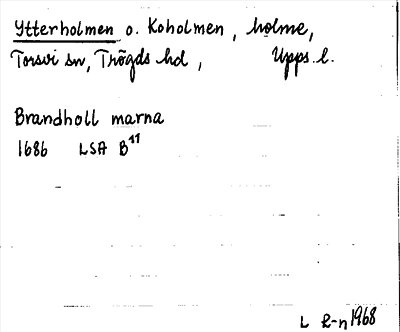 Ytterholmen o. Koholmen, holme,
Torsvi sn, Trögds hd, Upps. l.
Brandholl marna
1686 LSA B¹¹
L E-n 1968